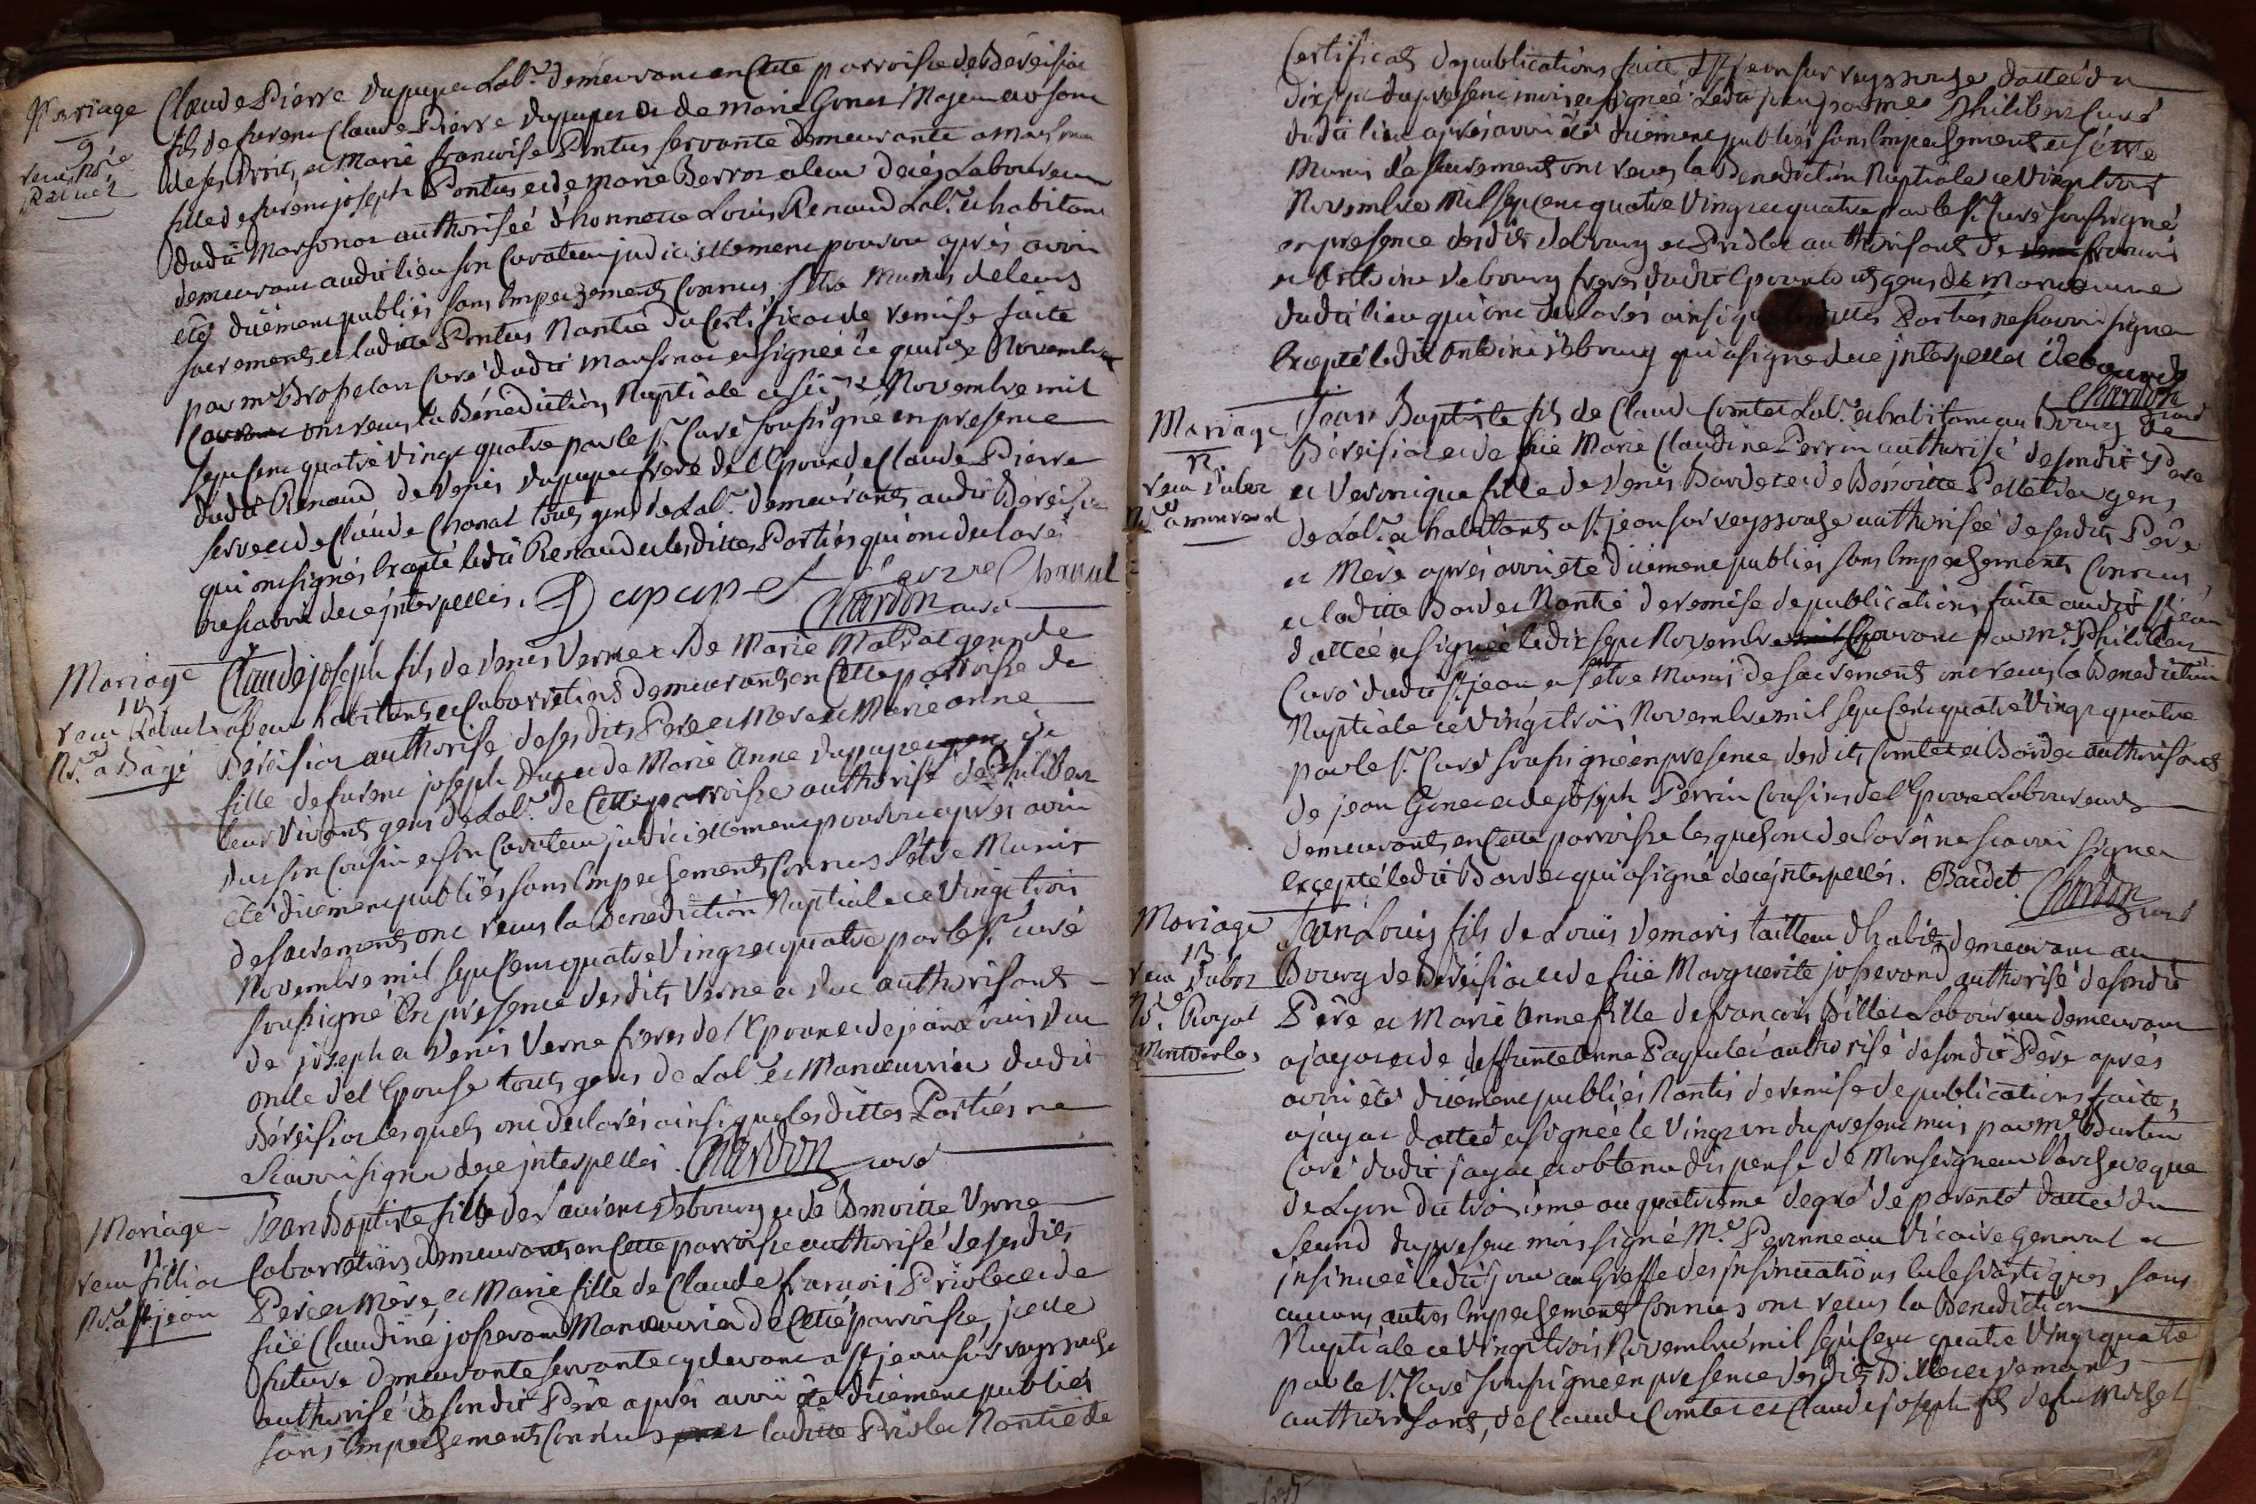 Mariage
9
Claude Pierre Dupupet Lab.r demeurant en Cette parroisse de Béréisiat
fils de furent Claude Pierre Dupupet et de Marie Gonet Majeur et
de ses Droits, et Marie francoise Pontus servante demeurante a
fille de furent joseph Pontus et de Marie Laboureur
dudit Marsonat authorisée d'honnette Louis Renaud Lab.r et habitant
demeurant audit lieu son Curateur judiciellement pourvu après avoir
été düement publiés sans Empechements Connus s'etre Munis de leurs
sacrements et laditte Pontus Nantie du Certificat de remise faite
par m.e Curé dudit Marsonat et signée le quinze Novembre
ont reçus la Bénédiction Nuptiale Novembre mil
sept cent quatre vingt quatre par le S.r Curé soussigné en presence
dudit Renaud de Denis Dupupet frere de l'Epoux de Claude Pierre
et de Claude Chanal tous gens de Lab.r demeurants audit Béréisiat
qui ont signés Excepté ledit Renaud et lesdittes Parties qui ont declaré
ne scavoir de ce jnterpellés. Dupupet Chanal
Chardon curé
Mariage
10
Claude joseph fils de Denis Verne et De Marie gens de
Labeur habitants et Cabarretiers demeurants en Cette parroisse de
n.re a Bâgé
Béréisiat authorisé de ses dits Pere et Mere et Marie anne
fille de furent joseph Duc et de Marie Anne Dupupet
leur Vivants gens de Lab.r de Cette parroisse authorisé de Philibert
Duc son Cousin et son Curateur judiciellement pourvu après avoir
été düement publiés sans Empechements Connus s'etre Munis
de sacrements ont reçus la Benediction Nuptiale ce Vingt trois
Novembre mil sept Cent quatre Vingt et quatre par le S.r curé
soussigné En presence desdits Verne et Duc authorisants
de joseph et Denis Verne freres de l'Epoux et de jean Louis Duc
oncle de l'Epouse touts gens de Lab.r et Manœuvrier dudit
Béréisiat lesquels ont declarés ainsi que lesdittes Parties ne
scavoir signer de ce jnterpellés. Chardon curé
Mariage
11
Jean Baptiste fils de Laurent Debourg et de Benoitte Verne
Cabarretiers demeurants en Cette parroisse authorisé de ses dits
reçu filliat
n.re a S.t jean
Pere et Mere, et Marie fille de Claude francois Pridet et de
füe Claudine josserand Manœuvrier de Cette parroisse, icelle
future demeurante servante cy devant a S.t jean sur reyssouse
authorisé de son dit Père après avoir été düement publiés
sans Empechements Connus laditte Pridet Nantie de
Certificat de publications faite a S.t jean sur reyssouse dattée du
dix sept du present mois et signée ledit jour par me Philibert curé
dudit lieu après avoir été düement publiés sans Empechements et s'etre
Munis de sacrements ont reçus la Benediction Nuptiale ce Vingt trois
Novembre Mil sept cent quatre Vingt et quatre par le S.r Curé soussigné
en presence desdits debourg et Pridet authorisants de francois
et Antoine debourg freres dudit Epoux touts gens de Manœuvre
dudit lieu qui ont declarés ainsi que Parties ne scavoir signer
Excepté ledit Antoine debourg qui a signé de ce jnterpellé debourg
Chardon curé
Mariage
12
Jean Baptiste fils de Claude Comtet Lab.r et habitant au Bourg de
Béréisiat et de füe Marie Claudine Perrin authorisé de son dit Pere
et Veronique fille de Denis Bardet et de Benoitte Pelletier gens
de Lab.r et habitants a S.t jean sur reyssouse authorisée de ses dits Père
et Mere après avoir été düement publiés sans Empechements Connus,
et laditte Bardet Nantie de remise de publications faite audit S.t jean
dattée et signée ledix sept Novembre Courant par m.e Philibert
Curé dudit S.t jean et s'etre Munis de sacrements ont reçus la Benediction
Nuptiale ce Vingt trois Novembre mil sept Cent quatre Vingt quatre
par le S.r Curé soussigné en presence desdits Comtet et Bardet authorisants
de jean Gonet et de joseph Perrin Cousins de l'Epoux Laboureurs
demeurants en Cette parroisse lesquels ont declarés ne scavoir signer
excepté ledit Bardet qui a signé de ce jnterpellés. Bardet
Chardon curé
Mariage
13
Jean Louis fils de Louis Demaris tailleur d'habits, demeurant au
Bourg de Béréisiat et de füe Marguerite josserand, authorisé de son dit
Père et Marie Anne fille de francois Billet Laboureur demeurant
a jayat et de deffunte Anne authorisé de son dit Père après
avoir été düement publiés Nantis de remise de publications faites
a jayat dattée et signée le Vingt un du present mois par m.e
Curé dudit jayat, et obtenu dispense de Monseigneur l'archeveque
de Lyon du troisieme au quatrieme degré de parenté dattée du
second du present mois signé M.e Vicaire general et
jnsinuée ledit jour au Greffe des jnsinuations Eclesiastiques, sans
aucuns autres Empechements Connus ont reçus la Benediction
Nuptiale ce Vingt trois Novembre mil sept Cent quatre Vingt quatre
par le S.r Curé soussigné en presence desdits Billet et demaris
authorisants, de Claude Comtet et Claude joseph fils de fu Michel